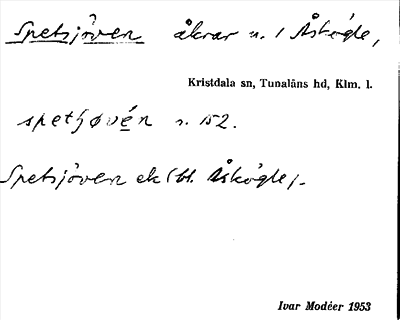 Spetsjöven åkrar u. / Åskögle,
Kristdala sn, Tunaläns hd, Klm. l.
spetʃøvén s. 152.
Spetsjöven ek (bl. Åskögle).
Ivar Modéer 1953